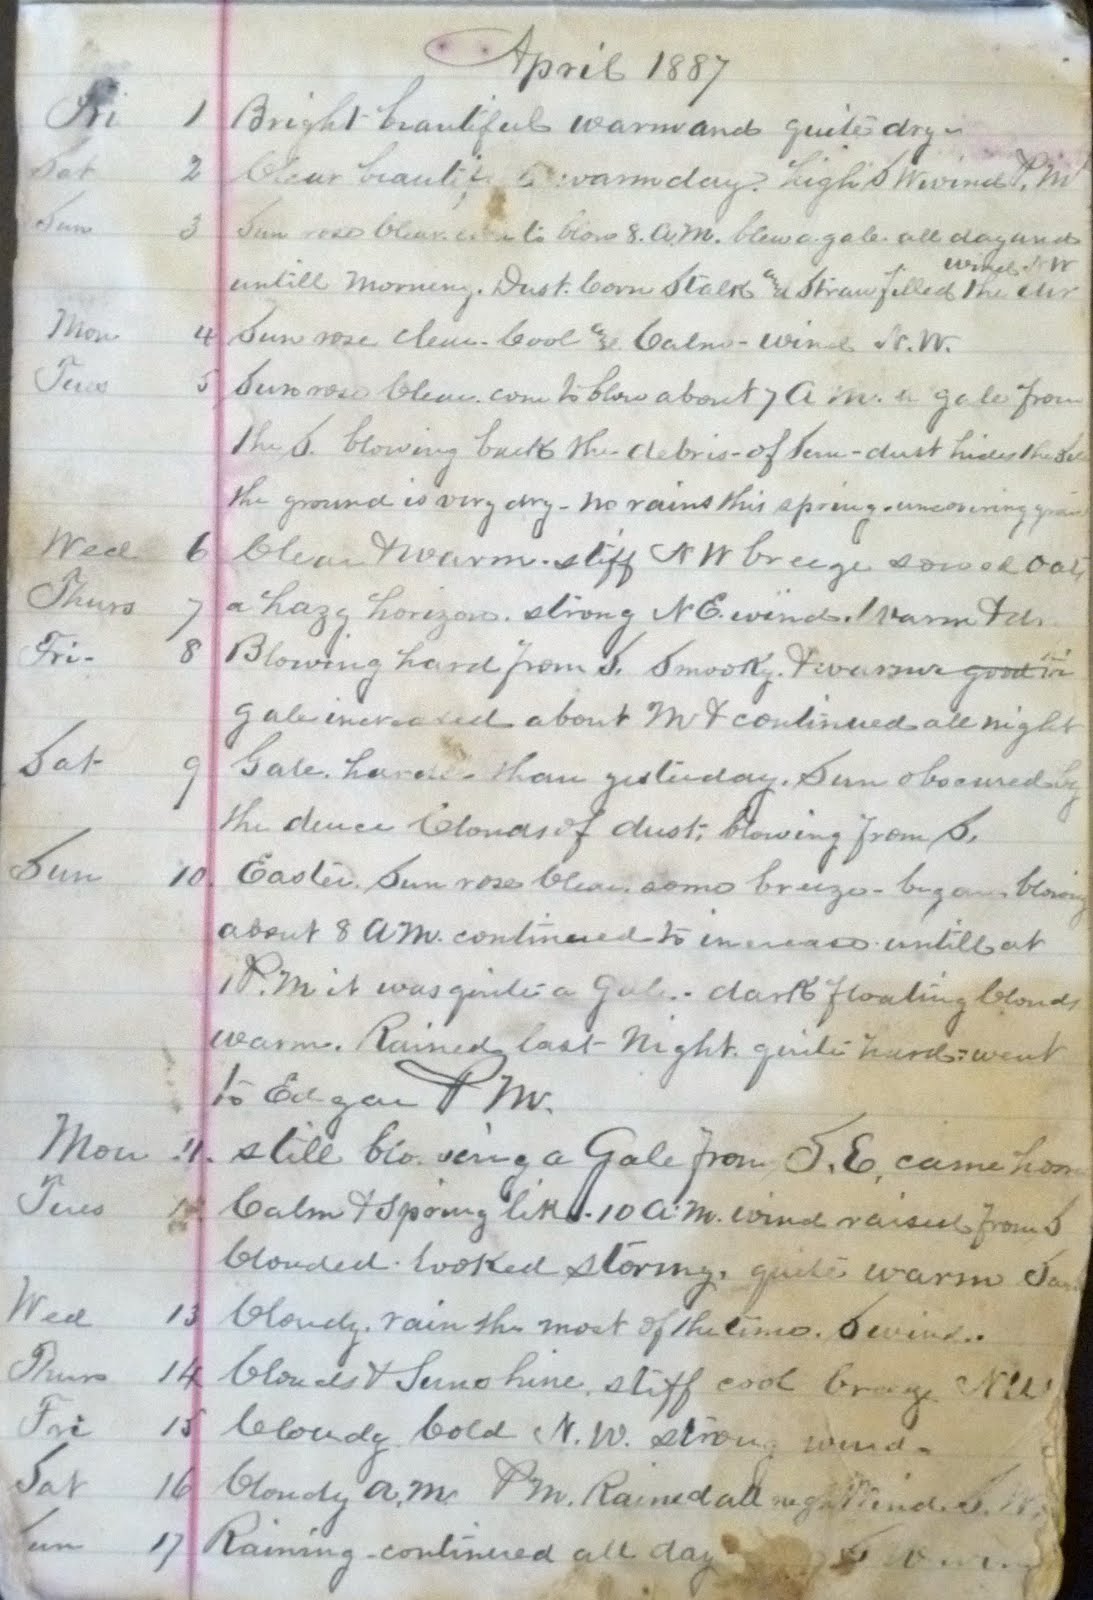 April 1887
Fri 1 Bright beautiful warm and quite dry
Sat 2 Clear warm day. high S W wind P. M
Sun 3 Sun rose Clear. to blow 8. A.M. blew a gale all day and
wind N W
untill Morning. Dust. Corn Stalk and Straw filled the air
Mon 4 Sun rose clear. Cool and Calm - wind N. W.
Tues 5 Sun rose Clear. com to blow about 7 A M. a gale from
the S. blowing back the debris of Sun - dust hides the
the ground is very dry - no rains this spring. uncovering grain
Wed 6 Clear & warm. stiff N W breeze sowed Oats
Thurs 7 a hazy horizon. strong N E. wind. Warm &
Fri. 8 Blowing hard from S. Smooky. & warm good
gale increased about M & continued all night
Sat 9 Gale. harder than yesterday. Sun obscured by
the dence Clouds of dust, blowing from S.
Sun 10. Easter. Sun rose Clear. some breeze - began blowing
about 8 A M. continued to increase untill at
1 P. M it was quite a Gale. - dark floating Clouds
warm. Rained last Night. quite hard: went
to Edgar P M.
Mon 11. still blowing a Gale from S. E. came home
Tues 12. Calm & Spring like. 10 A. M. wind raised from S
Clouded. looked stormy, quite warm
Wed 13 Cloudy. rain the most of the time. S wind.
Thurs 14 Clouds & Sunshine. stiff cool breeze N W
Fri 15 Cloudy Cold N. W. strong wind.
Sat 16 Cloudy A. M P M. Rained all night Wind. S. W.
Sun 17 Raining - continued all day S W wind